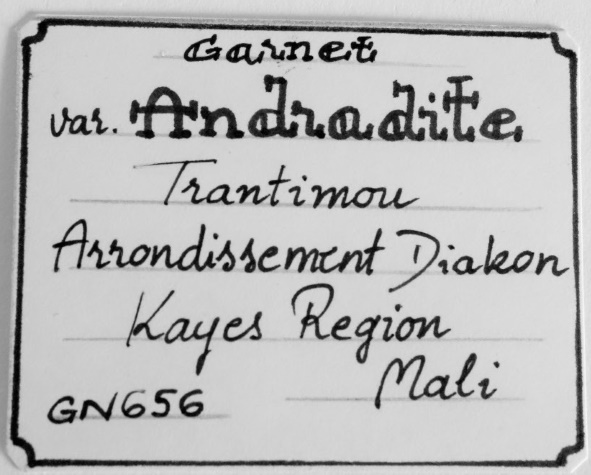 Garnet
var. Andradite
Trantimou
Arrondissement Diakon
Kayes Region
Mali
GN656